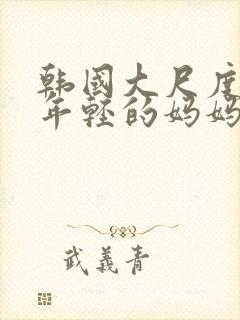 韩國大尺度
年轻的妈妈
武義青